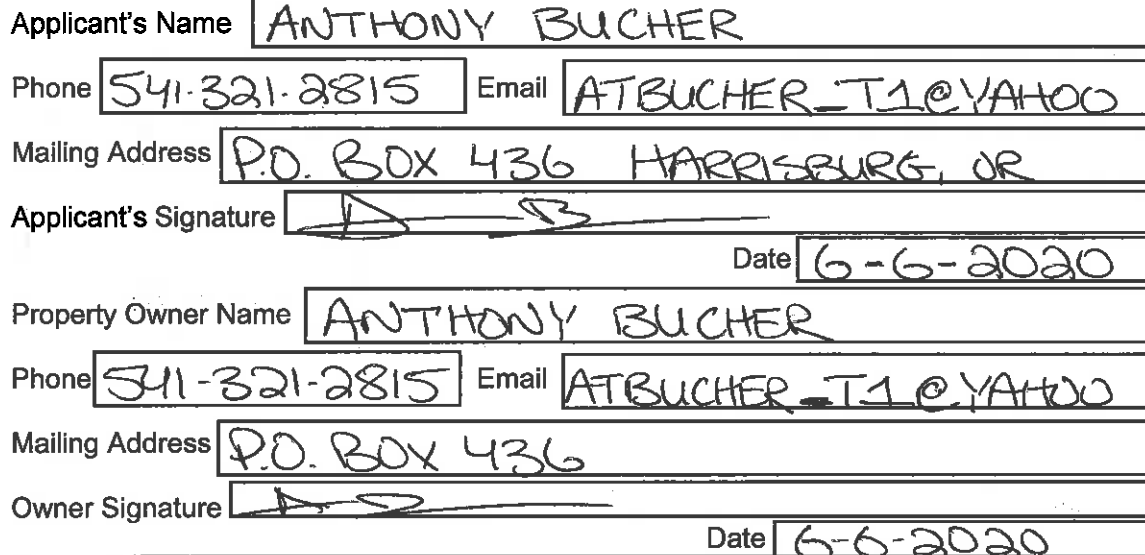 Applicant's Name ANTHONY BUCHER
Phone 541.321.2815 Email ATBUCHER_T1@YAHOO
Mailing Address P.O. BOX 436 HARRISBURG, OR
Applicant's Signature
Date 6-6-2020
Property Owner Name ANTHONY BUCHER
Phone 541-321-2815 Email ATBUCHER_T1@YAHOO
Mailing Address P.O. BOX 436
Owner Signature
Date 6-6-2020